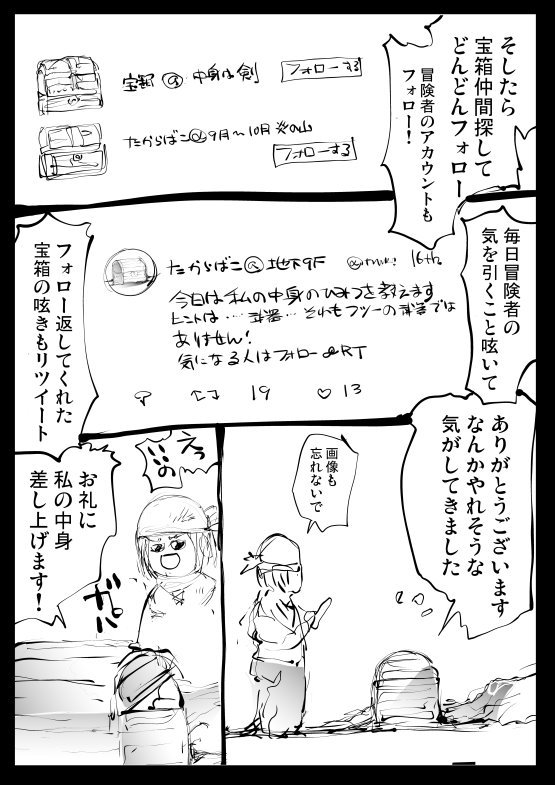 そしたら
宝箱仲間探して
どんどんフォロー
冒険者のアカウントも
フォロー！
宝箱@中身は剣
フォローする
たからばこ@9月〜10月
フォローする
毎日冒険者の
気を引くこと呟いて
たからばこ@地下9F
16th.
今日は私の中身のひみつを教えます
ヒントは…武器…それもフツーの武器では
ありません！
気になる人はフォロー&RT
19
13
フォロー返してくれた
宝箱の呟きもリツイート
ありがとうございます
なんかやれそうな
気がしてきました
画像も
忘れないで
えっ
いいの
お礼に
私の中身
差し上げます！
ガパ